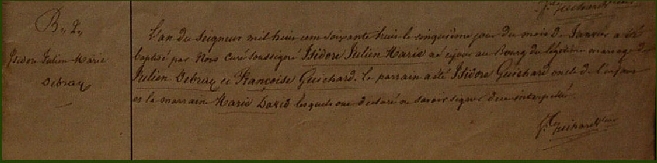 B. 2.
Isidore Julien Marie
Debray
L'an du Seigneur mil huit cent soixante huit le cinquième jour du mois de Janvier a été
baptisé par Nous curé soussigné Isidore Julien Marie né ce jour au bourg du légitime mariage de
Julien Debray et Françoise Guichard. Le parrain a été Isidore Guichard oncle de l'enfant
et la marraine Marie David lesquels ont déclaré ne savoir signer de ce interpellés.